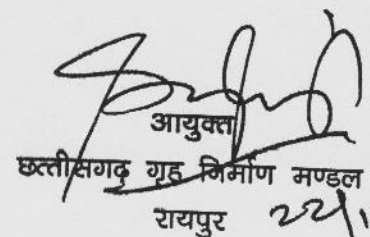 आयुक्त
छत्तीसगढ़ गृह निर्माण मण्डल
रायपुर 22/1